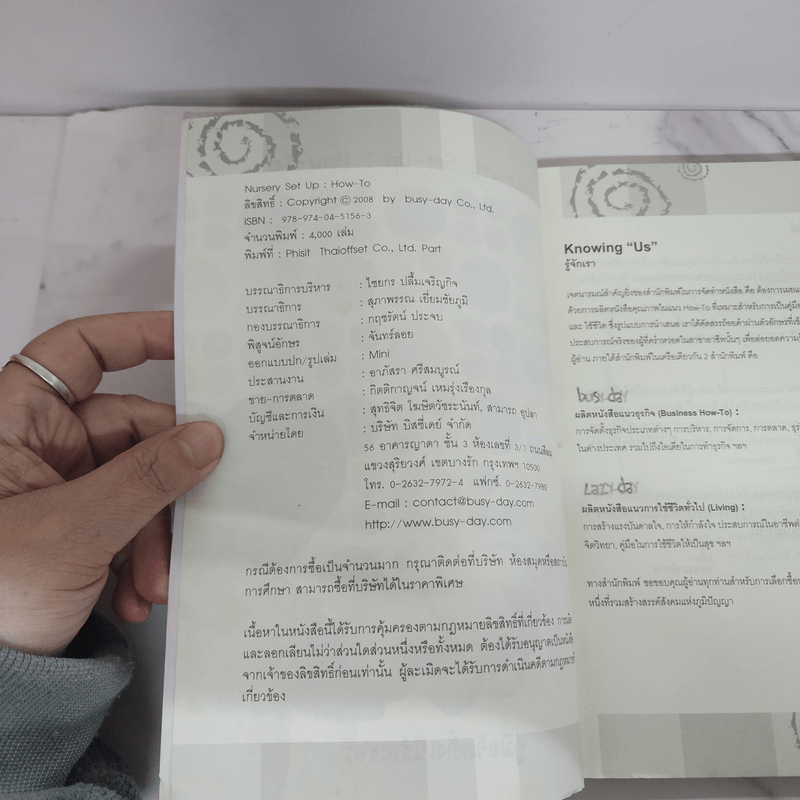 Nursery Set Up : How-To
ลิขสิทธิ์ : Copyright © 2008 by busy-day Co., Ltd.
ISBN : 978-974-04-5156-3
จำนวนพิมพ์ : 4,000 เล่ม
พิมพ์ที่ : Phisit Thaioffset Co., Ltd. Part
บรรณาธิการบริหาร : ไชยกร ปลื้มเจริญกิจ
บรรณาธิการ : สุภาพรรณ เยี่ยมชัยภูมิ
กองบรรณาธิการ : กฤชรัตน์ ประจบ
พิสูจน์อักษร : จันทร์ลอย
ออกแบบปก/รูปเล่ม : Mini
ประสานงาน : อาภัสรา ศรีสมบูรณ์
ขาย-การตลาด : กิตติกาญจน์ เหมรุ่งเรืองกุล
บัญชีและการเงิน : สุทธิจิต โฆษิตวัชระนันท์, สามารถ อุปลา
จำหน่ายโดย : บริษัท บิสซี่เดย์ จำกัด
56 อาคารญาดา ชั้น 3 ห้องเลขที่ 3/1 ถนนสีลม
แขวงสุริยวงศ์ เขตบางรัก กรุงเทพฯ 10500
โทร. 0-2632-7972-4 แฟกซ์. 0-2632-7980
E-mail : contact@busy-day.com
http://www.busy-day.com
กรณีต้องการซื้อเป็นจำนวนมาก กรุณาติดต่อที่บริษัท ห้องสมุดหรือสถาบัน
การศึกษา สามารถซื้อที่บริษัทได้ในราคาพิเศษ
เนื้อหาในหนังสือนี้ได้รับการคุ้มครองตามกฎหมายลิขสิทธิ์ที่เกี่ยวข้อง การผลิต
และลอกเลียนไม่ว่าส่วนใดส่วนหนึ่งหรือทั้งหมด ต้องได้รับอนุญาตเป็นหนังสือ
จากเจ้าของลิขสิทธิ์ก่อนเท่านั้น ผู้ละเมิดจะได้รับการดำเนินคดีตามกฎหมายที่
เกี่ยวข้อง
Knowing “Us”
รู้จักเรา
เจตนารมณ์สำคัญยิ่งของสำนักพิมพ์ในการจัดทำหนังสือ คือ ต้องการเผยแพ
ด้วยการผลิตหนังสือคุณภาพในแนว How-To ที่เหมาะสำหรับการเป็นคู่มือ
และ ใช้ชีวิต ซึ่งรูปแบบการนำเสนอ เราได้คัดสรรถ้อยคำผ่านตัวอักษรที่เข้
ประสบการณ์จริงของผู้ที่คร่ำหวอดในสาขาอาชีพนั้นๆ เพื่อต่อยอดความรู้
ผู้อ่าน ภายใต้สำนักพิมพ์ในเครือเดียวกัน 2 สำนักพิมพ์ คือ
busy-day
ผลิตหนังสือแนวธุรกิจ (Business How-To) :
การจัดตั้งธุรกิจประเภทต่างๆ การบริหาร, การจัดการ, การตลาด, ธุร
ในต่างประเทศ รวมไปถึงไอเดียในการทำธุรกิจ ฯลฯ
Lazy-day
ผลิตหนังสือแนวการใช้ชีวิตทั่วไป (Living) :
การสร้างแรงบันดาลใจ, การให้กำลังใจ ประสบการณ์ในอาชีพต่
จิตวิทยา, คู่มือในการใช้ชีวิตให้เป็นสุข ฯลฯ
ทางสำนักพิมพ์ ขอขอบคุณผู้อ่านทุกท่านสำหรับการเลือกซื้อห
หนึ่งที่รวมสร้างสรรค์สังคมแห่งภูมิปัญญา